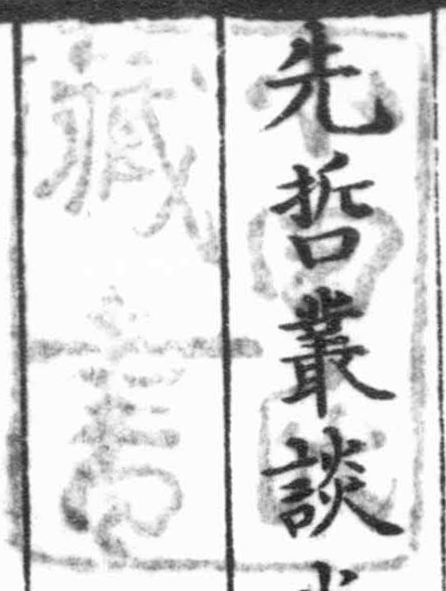 先哲叢談
藏書